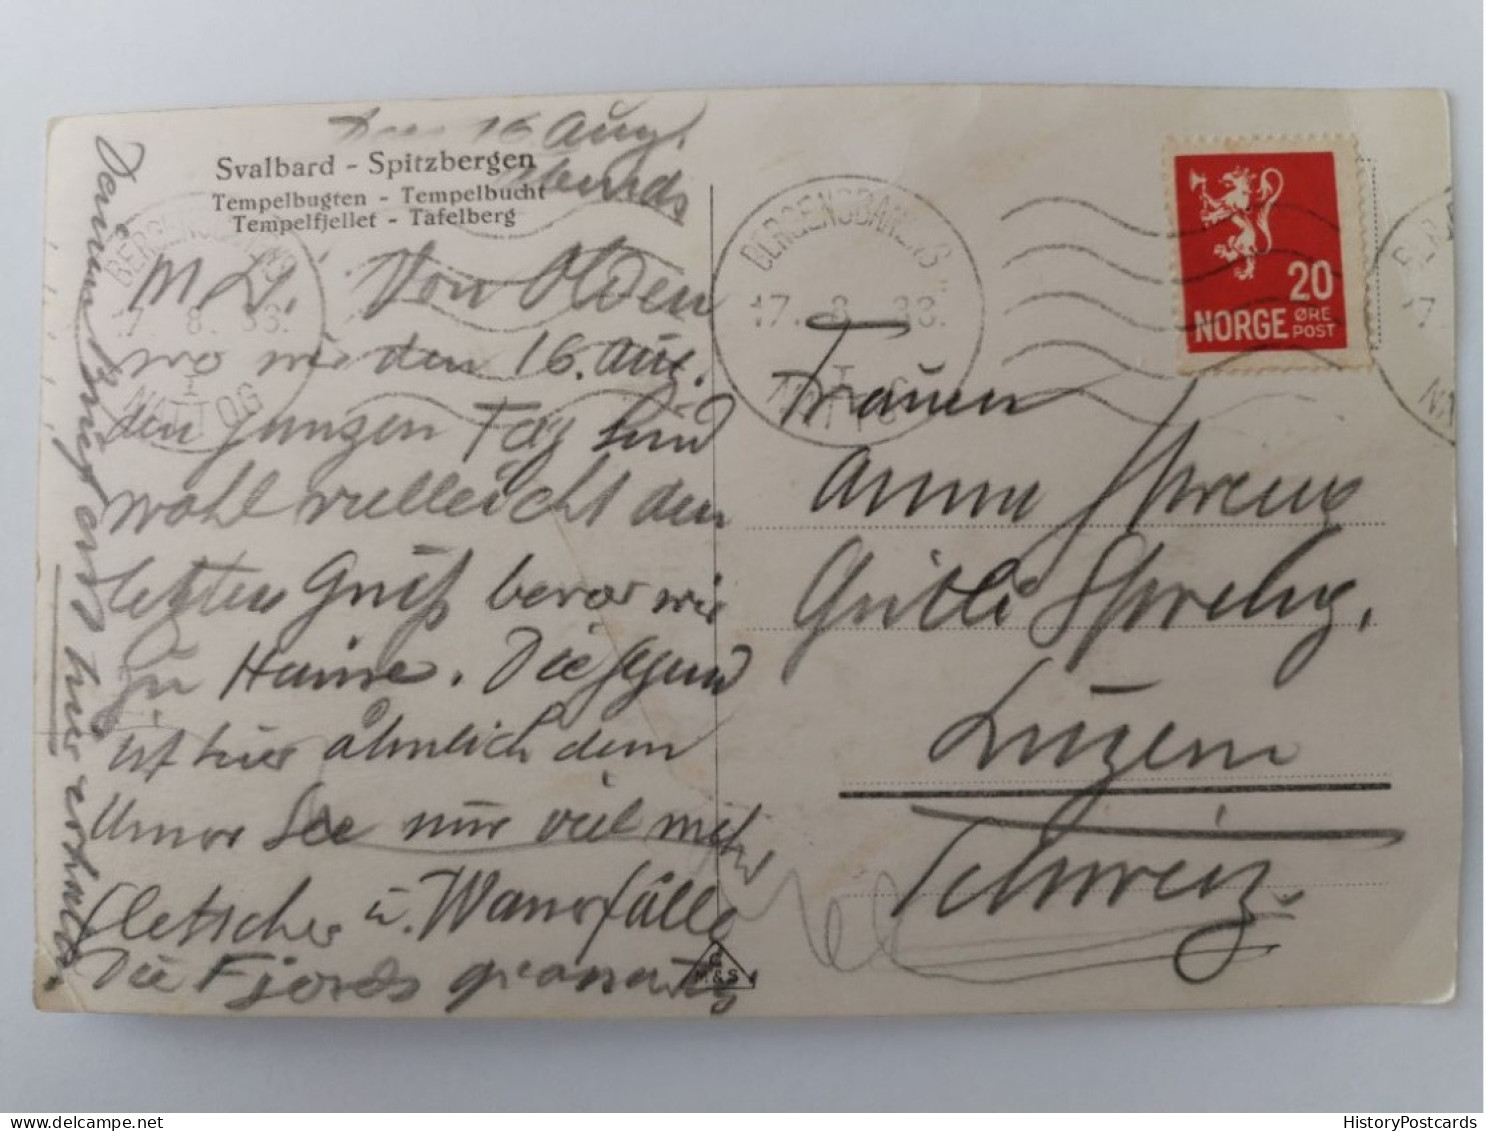 Den 16 Aug.
Abends
Svalbard - Spitzbergen
Tempelbugten - Tempelbucht
Tempelfjellet - Tafelberg
M. L. Von Olden
wo wir den 16. Aug.
den ganzen Tag sind
wohl vielleicht den
letzten Gruß bevor wir
zu Hause. Die Gegend
ist hier ähnlich dem
Urner See nur viel mehr
Gletscher u. Wasserfälle
Die Fjords grossartig
Deinen Brief erst hier erhalten.
BERGENSBANENS
17. 8. 33.
NATTOG
BERGENSBANENS
17. 8. 33.
I
NORGE
20
ØRE
POST
Frauen
Anna
Gritli
Luzern
Schweiz.
C
M&S
HistoryPostcards.com